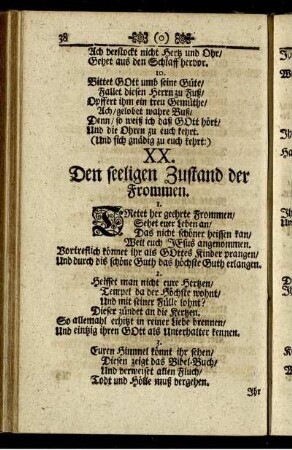 38 (o)
Ach verstockt nicht Hertz und Ohr/
Gehet aus den Schlaff hervor.
10.
Bittet GOtt umb seine Güte/
Fallet diesen Herrn zu Fuß/
Opffert ihm ein treu Gemüthe/
Ach/gelobet wahre Buß/
Denn/ so weiß ich daß GOtt hört/
Und die Ohren zu euch kehrt.
(Und sich gnädig zu euch kehrt:)
XX.
Den seeligen Zustand der
Frommen.
1.
TRetet her geehrte Frommen/
Sehet euer Leben an/
Das nicht schöner heissen kan/
Weil euch JEsus angenommen.
Vortreflich könnet ihr als GOttes Kinder prangen/
Und durch diß schöne Guth das höchste Guth erlangen.
2.
Heisset man nicht eure Hertzen/
Tempel da der Höchste wohnt/
Und mit seiner Fülle lohnt?
Dieser zündet an die Kertzen.
So allemahl erhitzt in reiner Liebe brennen/
Und eintzig ihren GOtt als Unterhalter kennen.
3.
Euren Himmel könnt ihr sehen/
Diesen zeigt das Bibel-Buch/
Und verweiset allen Fluch/
Todt und Hölle muß vergehen.
Ihr